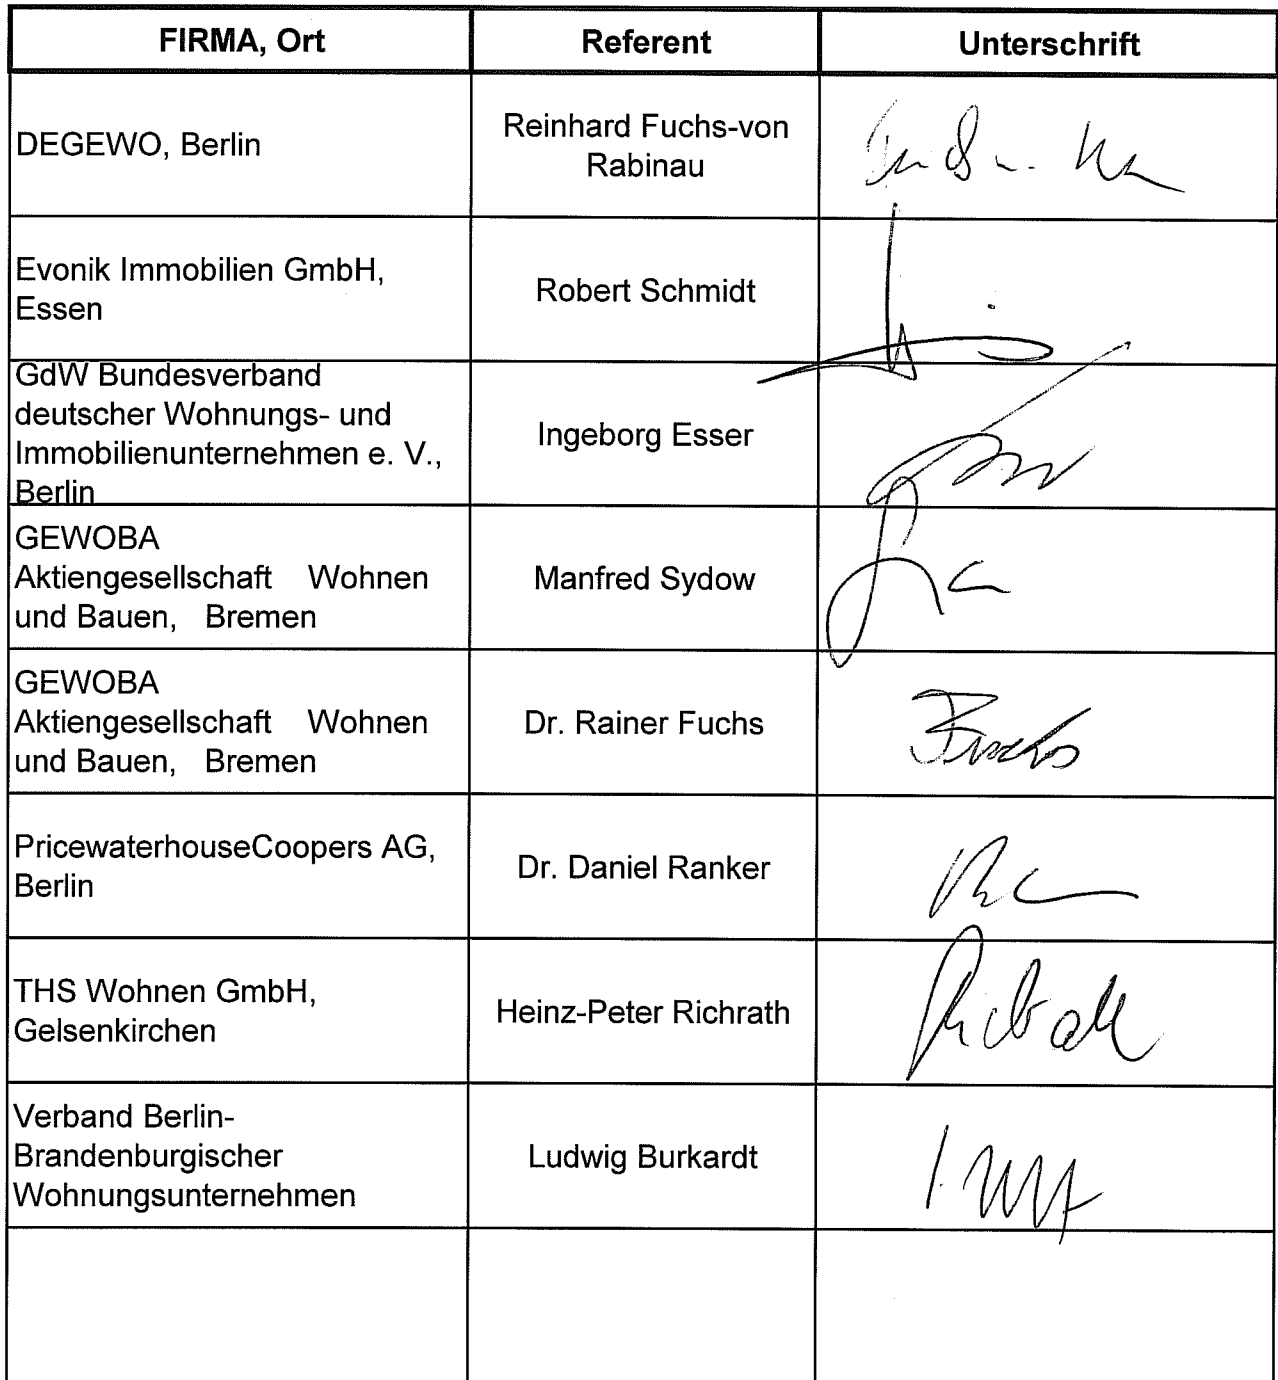 FIRMA, Ort
Referent
Unterschrift
DEGEWO, Berlin
Reinhard Fuchs-von
Rabinau
Evonik Immobilien GmbH,
Essen
Robert Schmidt
GdW Bundesverband
deutscher Wohnungs- und
Immobilienunternehmen e. V.,
Berlin
Ingeborg Esser
GEWOBA
Aktiengesellschaft Wohnen
und Bauen, Bremen
Manfred Sydow
GEWOBA
Aktiengesellschaft Wohnen
und Bauen, Bremen
Dr. Rainer Fuchs
Fuchs
PricewaterhouseCoopers AG,
Berlin
Dr. Daniel Ranker
THS Wohnen GmbH,
Gelsenkirchen
Heinz-Peter Richrath
Richrath
Verband Berlin-
Brandenburgischer
Wohnungsunternehmen
Ludwig Burkardt